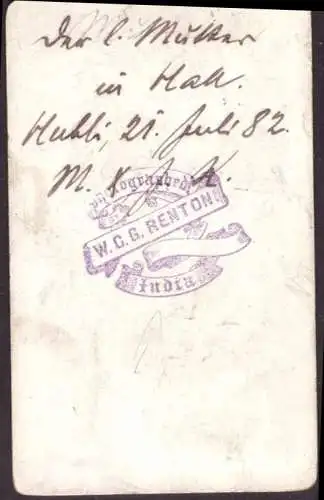 Der l. Mutter
in Hall.
Hubli, 21. Juli 82.
M. & J. K.
Photographed
W.C.G. RENTON
India